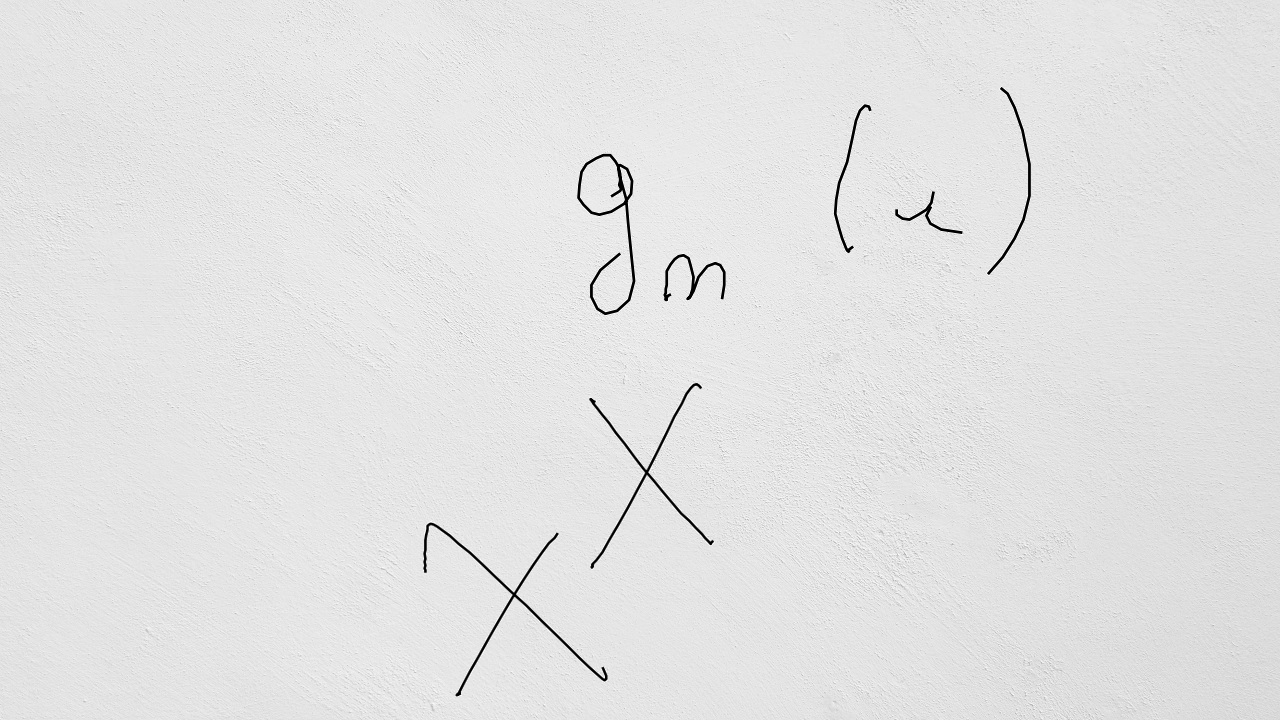 g_n (x)
X
X